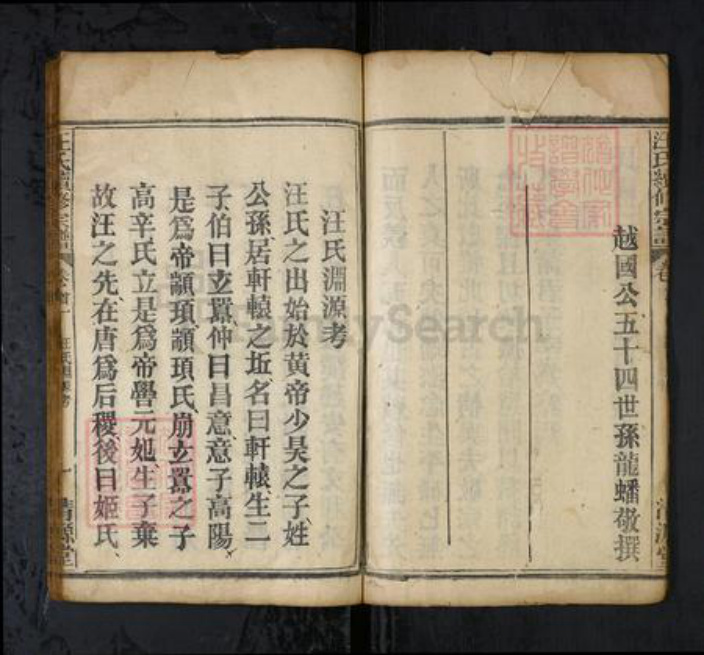 越國公五十四世孫龍蟠敬撰
汪氏淵源考
汪氏之出始於黄帝少昊之子姓
公孫居軒轅之坵名曰軒轅生二
子伯曰玄囂仲曰昌意意子高陽
是爲帝顓頊顓頊氏崩玄囂之子
高辛氏立是爲帝嚳元妃生子棄
故汪之先在唐爲后稷後曰姬氏
汪氏續修宗譜
卷首
汪氏淵源考
一
清源堂
FamilySearch